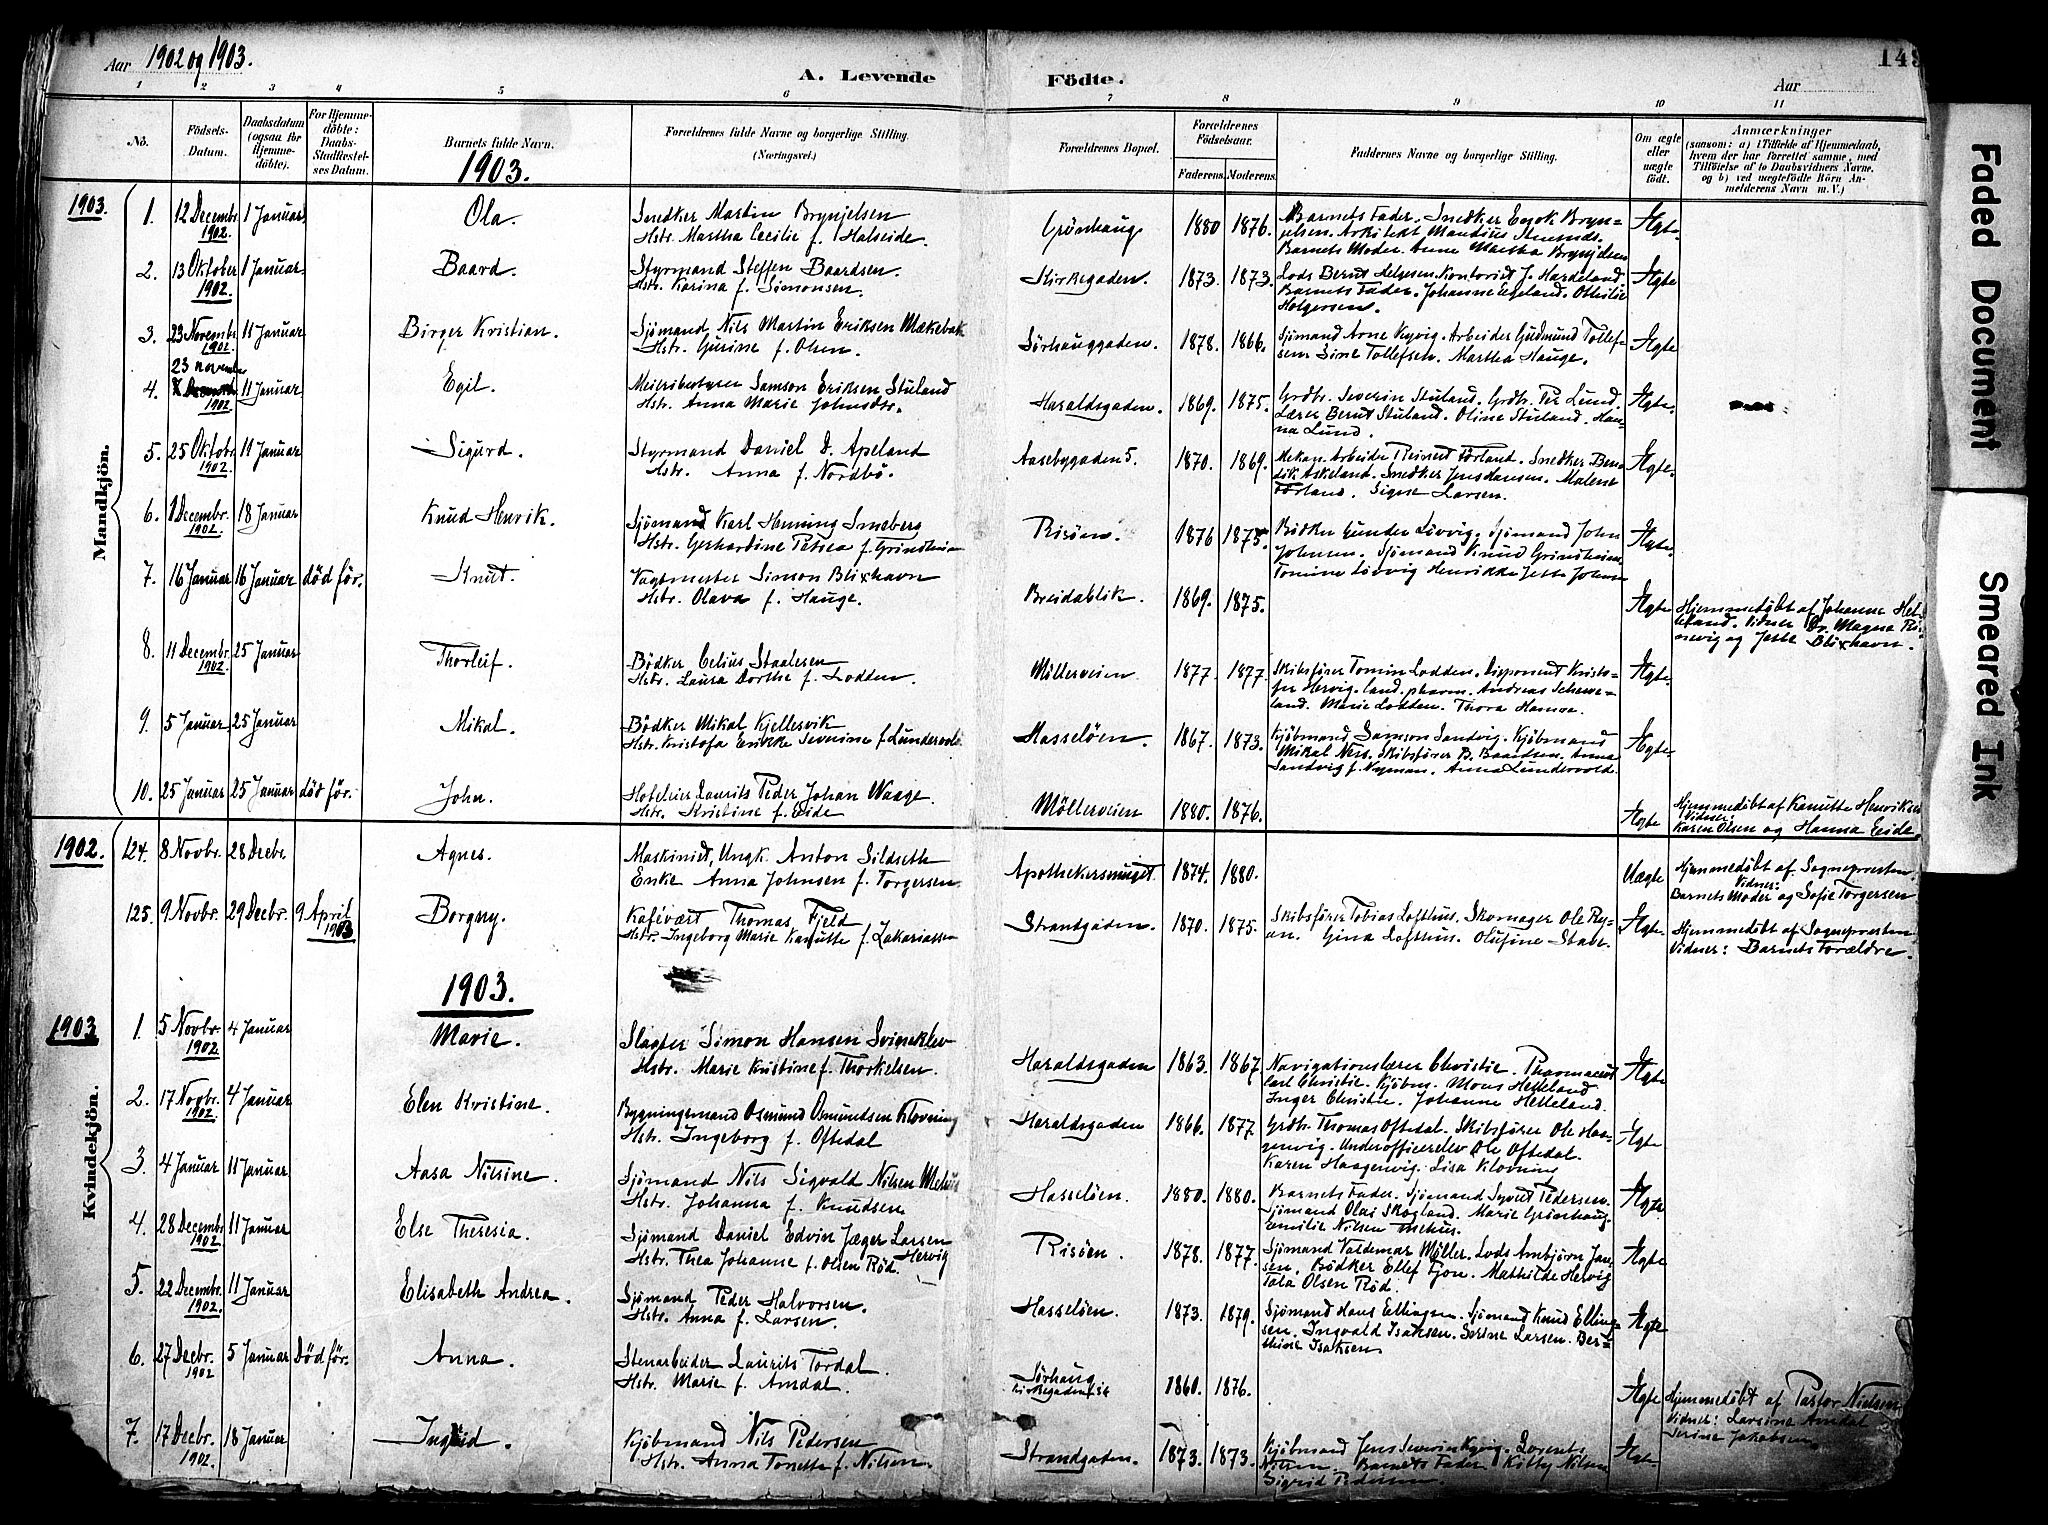 Aar 1902 og 1903.
A. Levende Födte.
Aar
149
1 2 3 4 5 6 7 8 9 10 11
No.
Födsels-Datum.
Daabsdatum (ogsaa for Hjemmedöbte).
For Hjemmedöbte: Daabs-Stadfæstelses Datum.
Barnets fulde Navn.
Forældrenes fulde Navne og borgerlige Stilling. (Næringsvei.)
Forældrenes Bopæl.
Forældrenes Födselsaar.
Faderens. Moderens.
Faddernes Navne og borgerlige Stilling.
Om ægte eller uægte födt.
Anmærkninger
(saasom: a) i Tilfælde af Hjemmedaab, hvem der har forrettet samme, med Tilföielse af to Daabsvidners Navne, og b) ved uægtefödte Börn Anmelderens Navn m. V.)
1903.
1903.
Mandkjön.
1. 12 Decembr. 1902. 1 Januar. Ola. Snedker Martin Brynjelsen
Hstr. Martha Cecilie f. Halseide.
Grönhaug 1880 1876. Barnets Fader. Snedker Brynjelsen. Arkitekt
Barnets Moder. Anne Martha Brynjelsen Ægte.
2. 13 Oktober 1902. 1 Januar. Baard. Styrmand Steffen Baardsen.
Hstr. Karina f. Simonsen.
Kirkegaden. 1873. 1873. Lods Bernt Helgesen. Kontorist J. Hardeland.
Barnets Fader. Johanne Egeland. Othilie
Holgersen. Ægte
3. 23 Novembr. 1902. 11 Januar. Birger Kristian. Sjömand Nils Martin Eriksen Mækebak
Hstr. Gurine f. Olsen.
Sörhauggaden. 1878. 1866. Sjömand Arne Kyvig. Arbeider Gudmund Tollefsen
Sine Tollefsen. Martha Hauge. Ægte
4. 23 november 1902. 11 Januar. Egil. Meieribestyrer Samson Eriksen Stuland
Hstr. Anna Marie Johnsdtr.
Haraldsgaden. 1869. 1875. Grdbr. Severin Stuland. Grdbr. Per Lund.
Lærer Bernt Stuland. Oline Stuland. Hanna Lund. Ægte.
5. 25 Oktobr. 1902. 11 Januar. Sigurd. Styrmand Daniel D. Apeland
Hstr. Anna f. Nordbö.
Aasebygaden 5. 1870. 1869. Mekan. Arbeider Reinert Förland. Snedker Bendik
Askeland. Snedker Jens Hansen. Malene
Förland. Signe Larsen. Ægte.
6. 1 Decembr. 1902. 18 Januar. Knud Henrik. Sjömand Karl Henning Sneberg
Hstr. Gerhardine Petrea f. Grindheim
Risöen. 1876 1875. Bödker Gunder Lövvig. Sjömand John
Johnsen. Sjömand Knud Grindheim
Tomine Lövvig Henrikke Ægte.
7. 16 Januar 16 Januar död för. Knut. Vagtmester Simon Blixhavn
Hstr. Olava f. Hauge.
Breidablik. 1869. 1875. Ægte Hjemmedöbt af Johanne
Vidner Magna
og Jette Blixhavn.
8. 11 Decembr. 1902. 25 Januar. Thorleif. Bödker Celius Staalesen
Hstr. Laura Dorthe f. Lodden.
Möllerveien 1877. 1877. Skibsförer Tomin Lodden. Disponent Kristoffer
Hervig. land. pharm. Andreas
Marie Lodden. Thora Ægte.
9. 5 Januar. 25 Januar. Mikal. Bödker Mikal Kjellesvik
Hstr. Kristofa Enikke Severine f. Lundevold.
Hasselöen. 1867. 1873. Kjöbmand Samson Sandvig. Kjöbmand
Mikal Næss. Skibsförer B. Baardsen. Anna
Sandvig f. Nyman. Anna Lundevold. Ægte.
10. 25 Januar. 25 Januar död för. John. Hoteleier Laurits Peder Johan Waage.
Hstr. Kristine f. Eide
Möllerveien 1880. 1876. Ægte Hjemmedöbt af Kanutte Henriksen
Vidner:
Karen Olsen og Hanna Eide.
1902. 124. 8 Novbr. 28 Decbr. Agnes. Maskinist, Ungk. Anton Sildseth
Enke Anna Johnsen f. Torgersen.
Apothekersmuget. 1874. 1880. Uægte Hjemmedöbt af Sognepresten.
Vidner:
Barnets Moder og Sofie Torgersen
125. 9 Novbr. 29 Decbr. 9 April 1903 Borgny. Kafévært Thomas Fjeld
Hstr. Ingeborg Marie Kanutte f. Zakariassen
Strandgaden. 1870. 1875. Skibsförer Tobias Lofthus. Skomager Ole
Gina Lofthus. Olufine Ægte. Hjemmedöbt af Sognepresten
Vidner: Barnets Forældre.
1903.
1903
Kvindekjön.
1. 5 Novbr. 1902 4 Januar Marie. Slagter Simon Hansen Svineklev
Hstr. Marie Kristine f. Thorkelsen.
Haraldsgaden 1863. 1867. Navigationslærer Christie. Pharmaceut
Carl Christie. Kjöbm. Mons Helleland
Inger Christie. Johanne Helleland. Ægte
2. 17 Novbr. 1902 4 Januar Elen Kristine. Bygningsmand Osmund Osmundsen Klovning
Hstr. Ingeborg f. Oftedal
Haraldsgaden 1866. 1877. Grdbr. Thomas Oftedal. Skibsförer Ole Haagenvig.
Underofficerelev Ole Oftedal.
Karen Haagenvig. Lisa Klovning Ægte
3. 4 Januar 11 Januar. Aasa Nilsine. Sjömand Nils Sigvald Nilsen Mehus
Hstr. Johanna f. Knudsen
Hasselöen. 1880. 1880. Barnets Fader. Sjömand Syvert Pedersen.
Sjömand Olai Skogland. Marie Grönhaug.
Emilie Nilsen Mehus. Ægte.
4. 28 Decembr. 1902 11 Januar. Else Theresia. Sjömand Daniel Edvin Jæger Larsen Hervig
Hstr. Thea Johanne f. Olsen Röd.
Risöen. 1878. 1877. Sjömand Valdemar Möller. Lods Ambjörn Jansen.
Bödker Ellef Fjon. Mathilde Hervig
Tala Olsen Röd. Ægte
5. 22 Decembr. 1902. 11 Januar. Elisabeth Andrea. Sjömand Peder Halvorsen.
Hstr. Anna f. Larsen.
Hasselöen. 1873. 1879. Sjömand Hans Ellingsen. Sjömand Knud Ellingsen.
Ingvald Isaksen. Serine Larsen. Berthine
Isaksen Ægte
6. 27 Decbr. 1902 5 Januar Död för. Anna. Stenarbeider Laurits Tordal
Hstr. Marie f. Amdal.
Sörhaug
Kirkegaden 1860. 1876. Ægte Hjemmedöbt af Pastor Nielsen
Vidner: Larsine Amdal
Serine Jakobsen.
7. 17 Decbr. 1902. 18 Januar Ingrid. Kjöbmand Nils Pedersen
Hstr. Anna Tonette f. Nilsen.
Strandgaden. 1873. 1873. Kjöbmand Jens Severin Kyvig. Lorents
Nilsen. Barnets Fader. Kitty Nilsen
Sigrid Pedersen. Ægte.
Faded Document
Smeared Ink